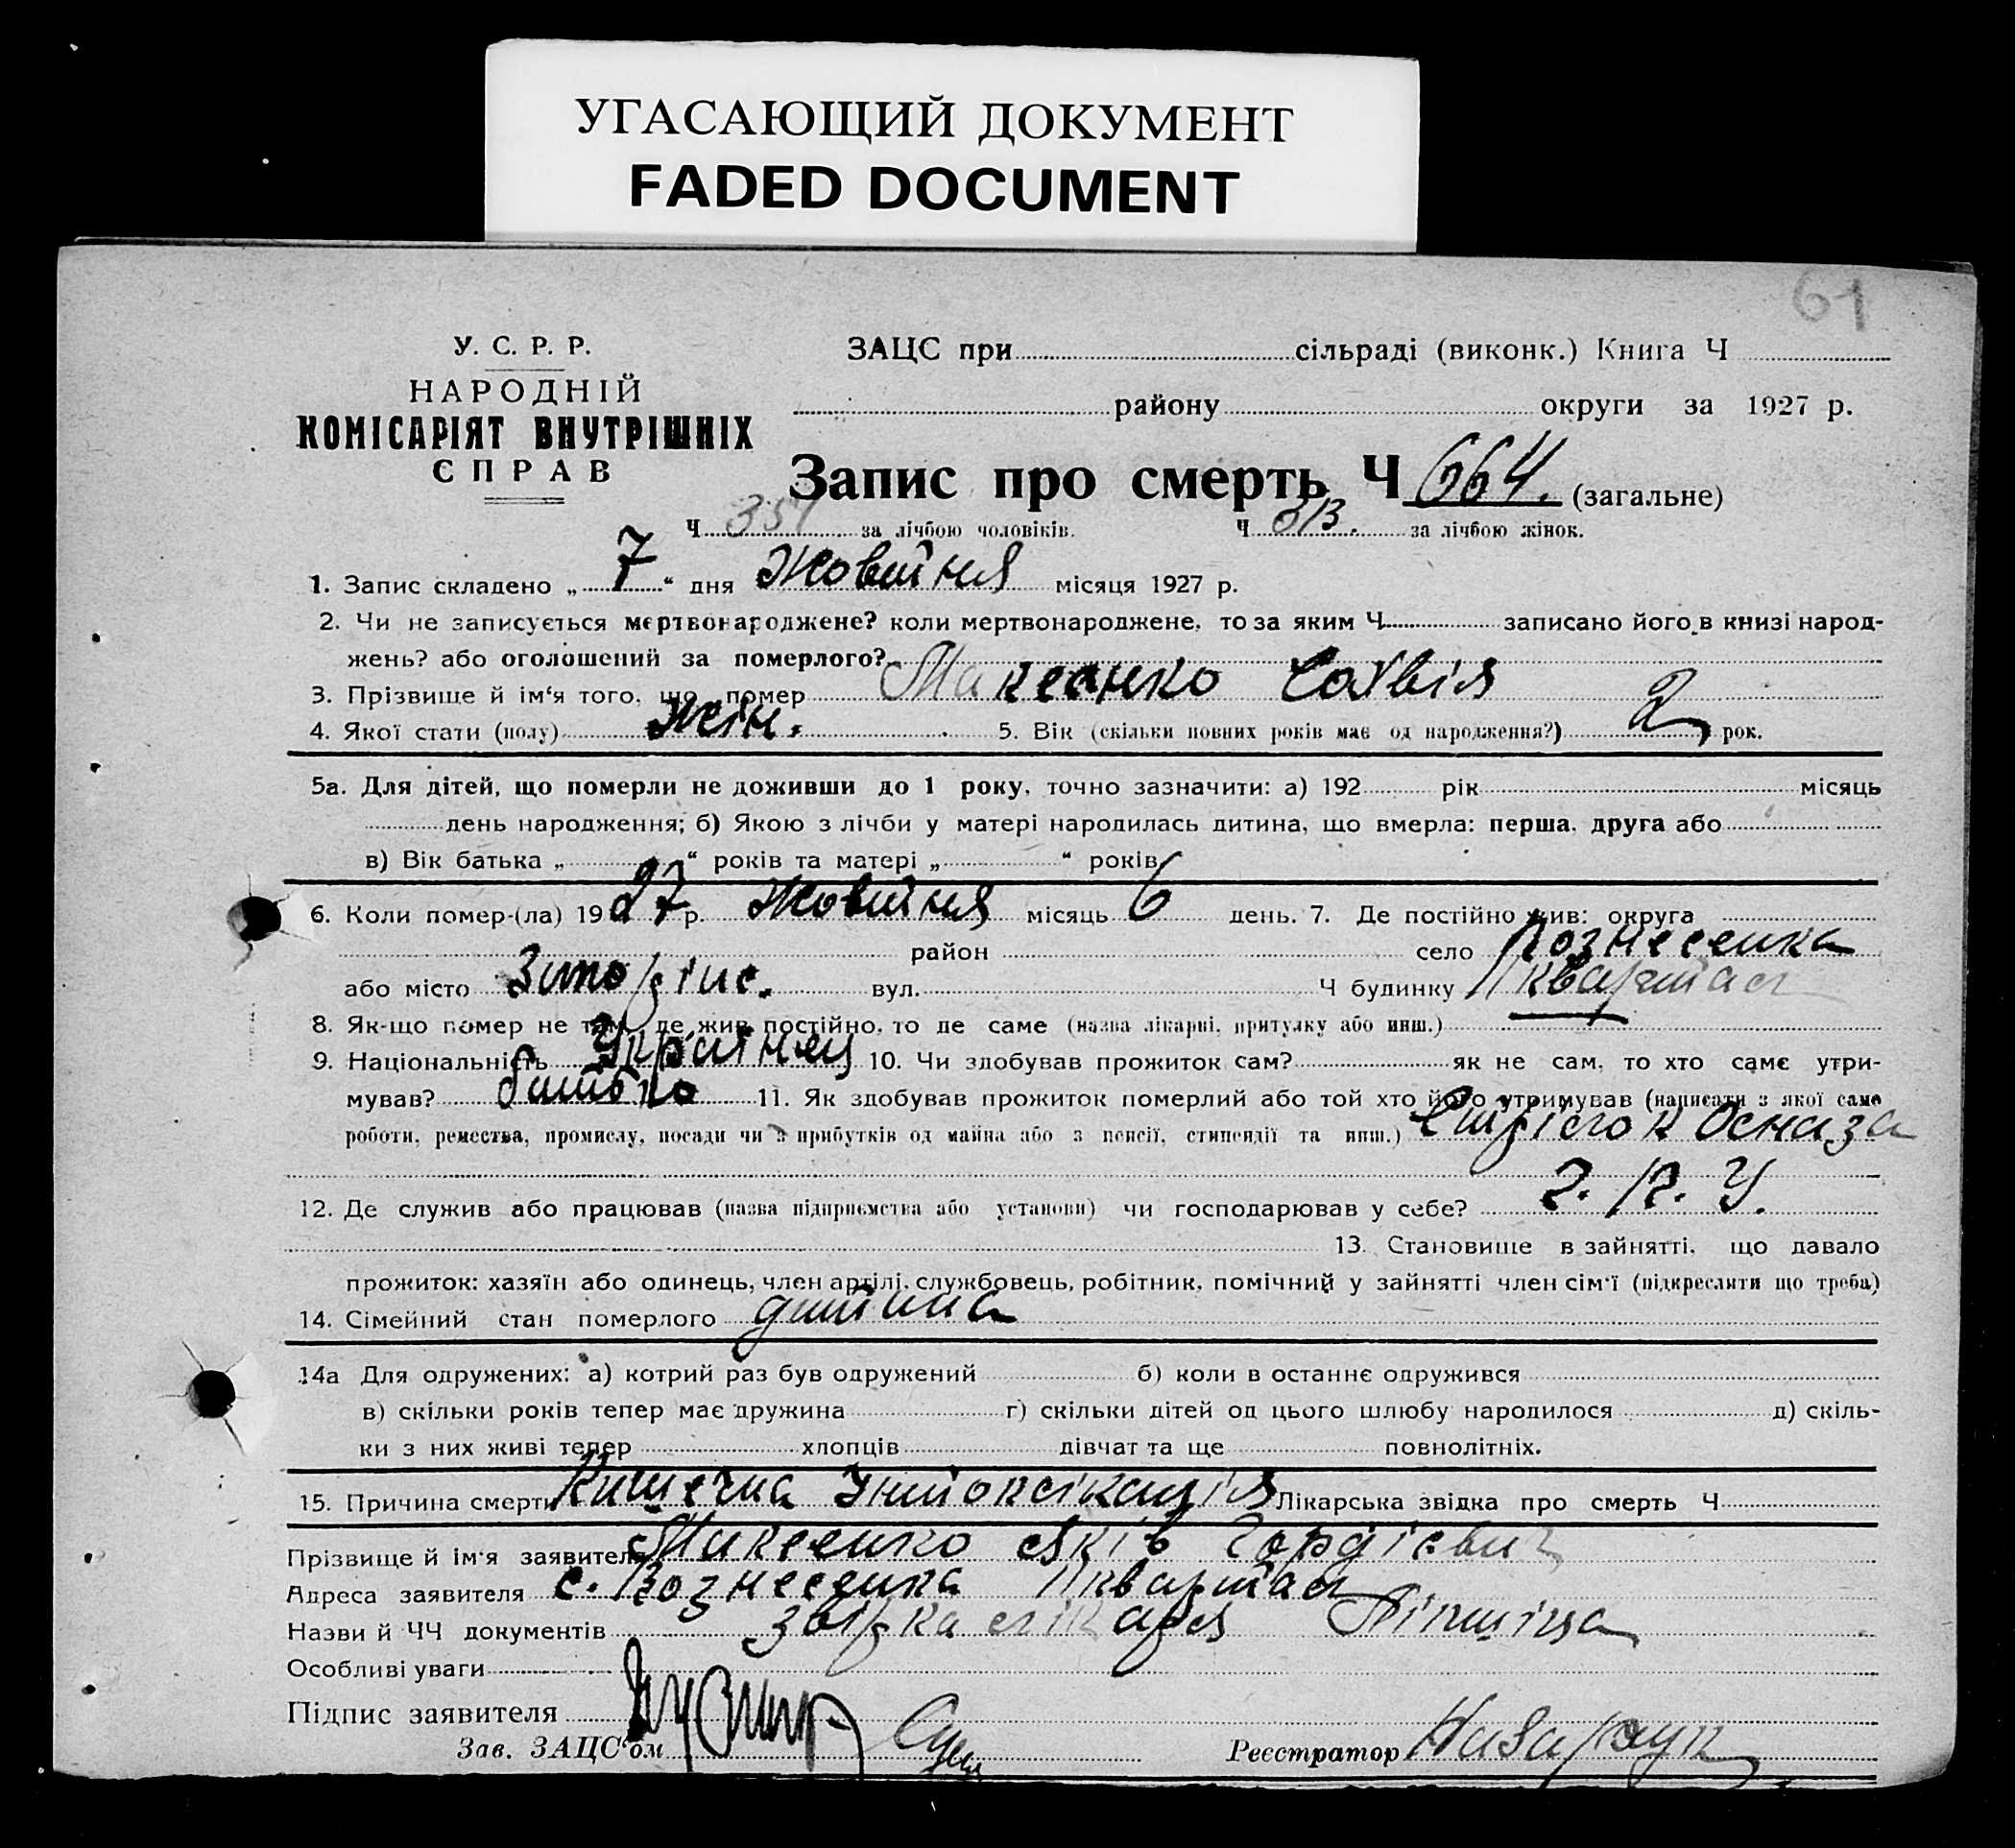 УГАСАЮЩИЙ ДОКУМЕНТ
FADED DOCUMENT
61
У. С. Р. Р.
НАРОДНІЙ
КОМІСАРІЯТ ВНУТРІШНІХ
СПРАВ
ЗАЦС при сільраді (виконк.) Книга Ч
району округи за 1927 р.
Запис про смерть Ч 664. (загальне)
Ч 351 за лічбою чоловіків. Ч 313. за лічбою жінок.
1. Запис складено „ 7 “ дня Жовтня місяця 1927 р.
2. Чи не записується мертвонароджене? коли мертвонароджене, то за яким Ч записано його в книзі народ-
жень? або оголошений за померлого?
3. Прізвище й ім‘я того, що помер Макеенко
4. Якої стати (полу) жін. 5. Вік (скільки повних років має од народження?) 2 рок.
5а. Для дітей, що померли не доживши до 1 року, точно зазначити: а) 192 рік місяць
день народження; б) Якою з лічби у матері народилась дитина, що вмерла: перша, друга або
в) Вік батька „ “ років та матері „ “ років
6. Коли помер-(ла) 1927 р. Жовтня місяць 6 день. 7. Де постійно жив: округа
район село Вознесенка
або місто Запоріжє. вул. Ч будинку II квартал
8. Як-що помер не там, де жив постійно, то де саме (назва лікарні, притулку або инш.)
9. Національність 10. Чи здобував прожиток сам? як не сам, то хто саме утри-
мував? батько 11. Як здобував прожиток померлий або той хто його утримував (написати з якої само
роботи, ремества, промислу, посади чи з прибутків од майна або з пенсії, стипендії та инш.) Стрілок Осназа
Г. П. У.
12. Де служив або працював (назва підприємства або установи) чи господарював у себе?
13. Становище в зайнятті, що давало
прожиток: хазяїн або одинець, член артілі, службовець, робітник, помічний у зайнятті член сім‘ї (підкреслити що треба)
14. Сімейний стан померлого дитина
14а Для одружених: а) котрий раз був одружений б) коли в останнє одружився
в) скільки років тепер має дружина г) скільки дітей од цього шлюбу народилося д) скіль-
ки з них живі тепер хлопців дівчат та ще повнолітніх.
15. Причина смерти Кишечна Інтоксікація Лікарська звідка про смерть Ч
Прізвище й ім‘я заявителя Макеенко Яків Гордієвич
Адреса заявителя с. Вознесенка II квартал
Назви й ЧЧ документів звідка лікаря
Особливі уваги
Підпис заявителя
Зав. ЗАЦС‘ом Реєстратор